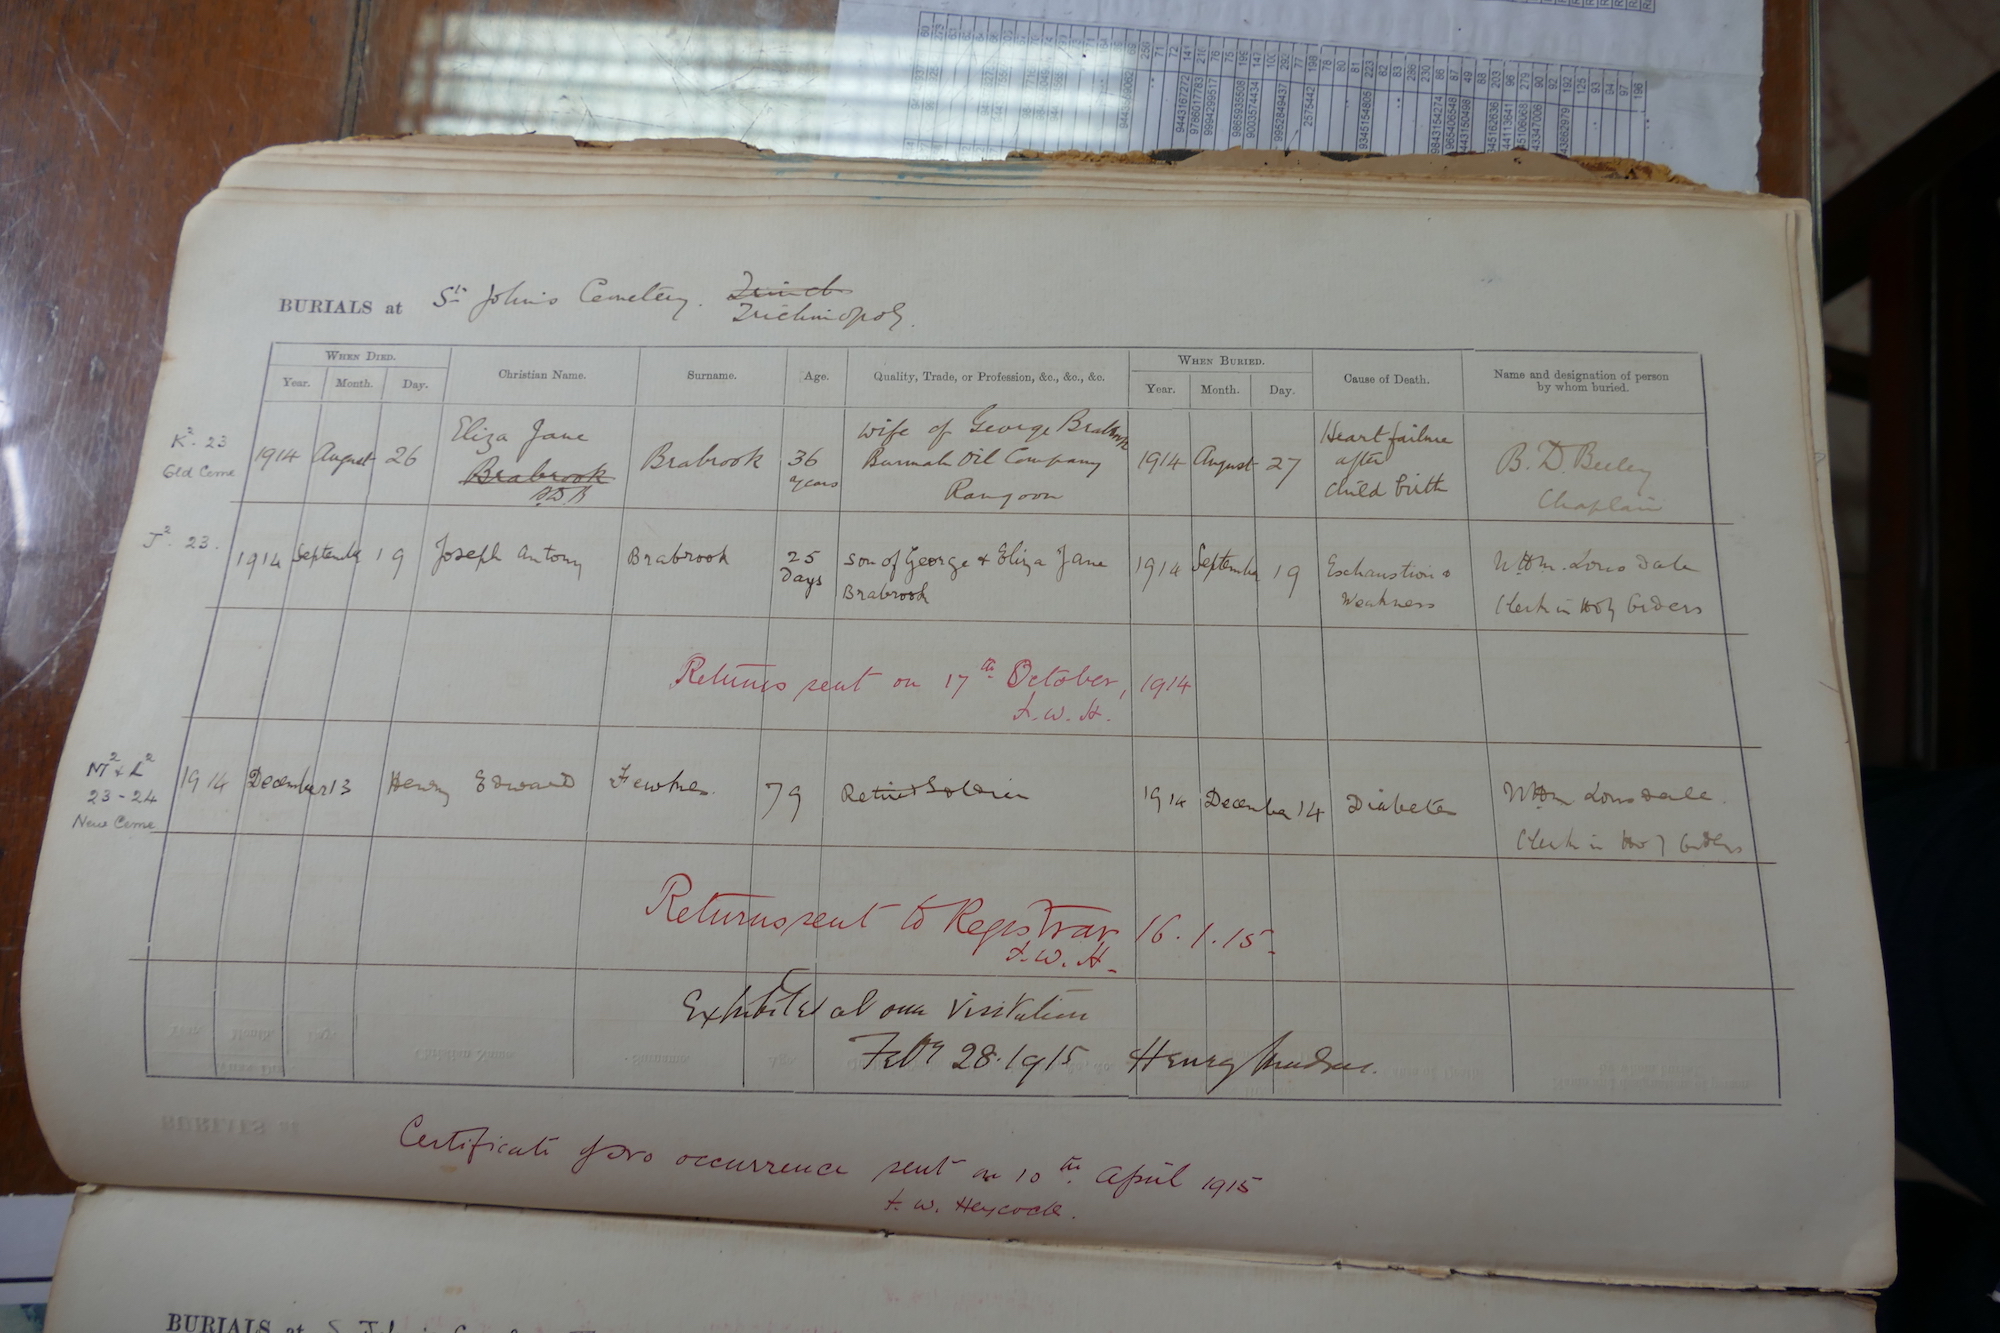 BURIALS at St. John's Cemetery. Trinch
Trichinopoly.
WHEN DIED.
WHEN BURIED.
Year. Month. Day. Christian Name. Surname. Age. Quality, Trade, or Profession, &c., &c., &c. Year. Month. Day. Cause of Death. Name and designation of person
by whom buried.
K2. 23
Old Ceme
1914 August 26 Eliza Jane
Brabrook
B.D.B
Brabrook 36
years
Wife of George Brabrook
Burmah Oil Company
Rangoon
1914 August 27 Heart failure
after
Child birth
B. D. Beeley
Chaplain
J2. 23.
1914 September 19 Joseph Antony Brabrook 25
Days
Son of George & Eliza Jane
Brabrook
1914 September 19 Exhaustion &
Weakness
Lonsdale
Clerk in Holy Orders
Returns sent on 17th October, 1914
F. W. H.
M2 & L2
23-24
New Ceme
1914 December 13 Henry Edward Fewkes. 79 Retired Soldier 1914 December 14 Diabetes
Lonsdale.
Clerk in Holy Orders
Returns sent to Registrar 16.1.15.
F. W. H.
Exhibited at our Visitation
Feby 28. 1915 Henry Madras.
Certificate of no occurrence sent on 10th April 1915
F. W. Heycock.
BURIALS at